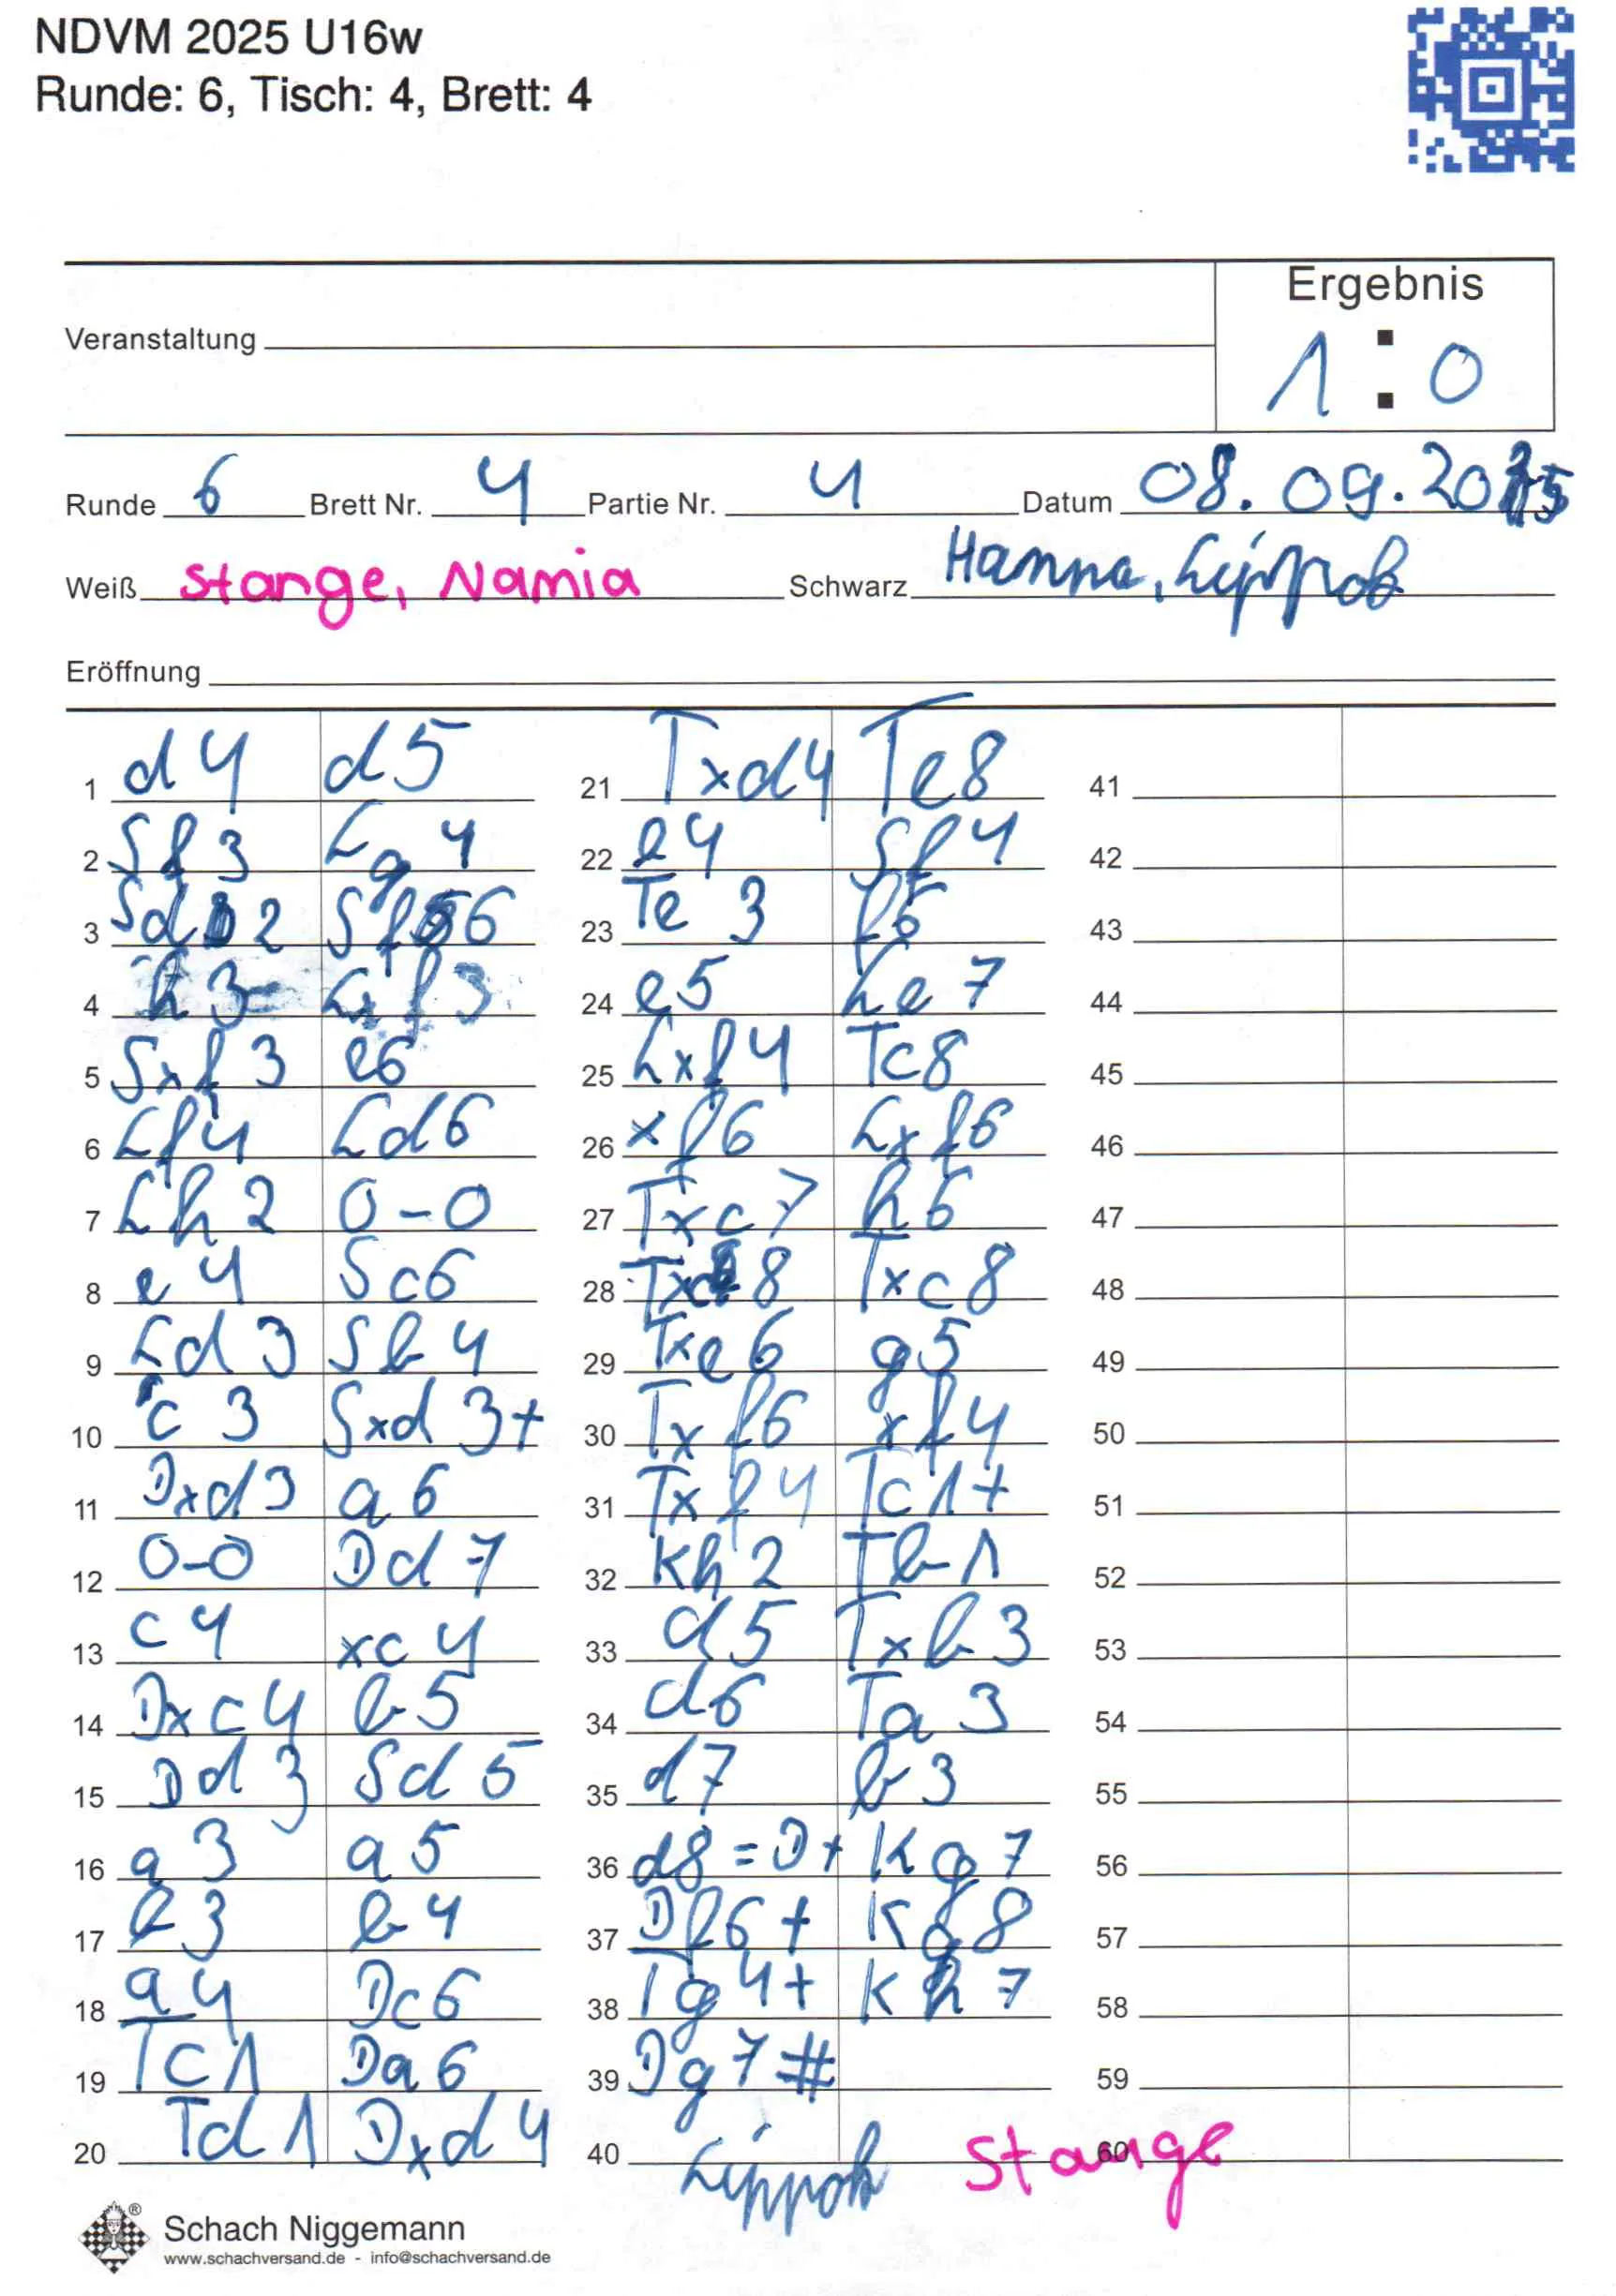 NDVM 2025 U16w
Runde: 6, Tisch: 4, Brett: 4
Ergebnis
1 : 0
Veranstaltung
Runde 6 Brett Nr. 4 Partie Nr. 4 Datum 08.09.2025
Weiß Stange, Namia Schwarz Hanna, Lippok
Eröffnung
1 d4 d5
2 Sf3 Lg4
3 Sd2 Sf6
4 h3 Lxf3
5 Sxf3 e6
6 Lf4 Ld6
7 Lh2 0-0
8 e4 Sc6
9 Ld3 Sb4
10 c3 Sxd3+
11 Dxd3 a6
12 0-0 Dd7
13 c4 xc4
14 Dxc4 b5
15 Dd3 Sd5
16 a3 a5
17 b3 b4
18 a4 Dc6
19 Tc1 Da6
20 Td1 Dxd4
21 Txd4 Te8
22 e4 Sf4
23 Te3 f6
24 e5 Le7
25 Lxf4 Tc8
26 xf6 Lxf6
27 Txc7 h6
28 Txc8 Txc8
29 Txe6 g5
30 Txf6 xf4
31 Txf4 Tc1+
32 Kh2 Tb1
33 d5 Txb3
34 d6 Ta3
35 d7 b3
36 d8=D+ Kg7
37 Df6+ Kg8
38 Tg4+ Kh7
39 Dg7#
40 Lippok Stange
41
42
43
44
45
46
47
48
49
50
51
52
53
54
55
56
57
58
59
60
Schach Niggemann
www.schachversand.de - info@schachversand.de